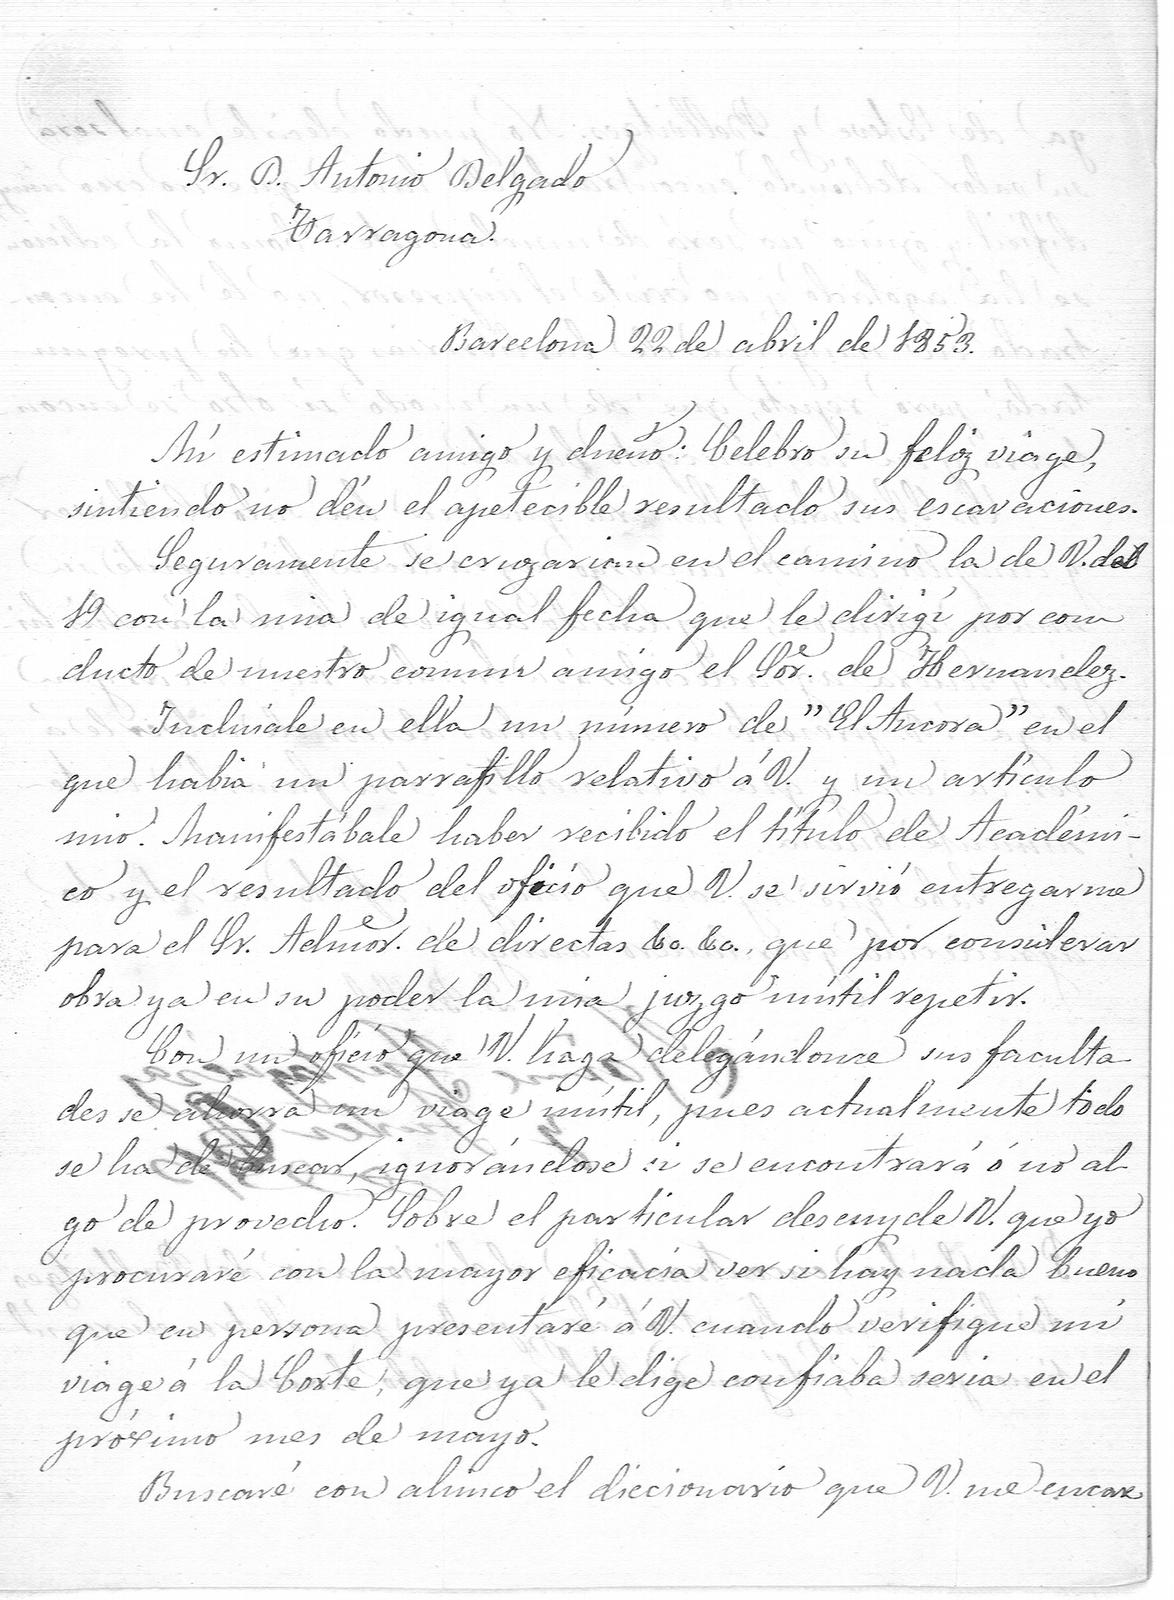 Sr. D. Antonio Delgado
Tarragona.
Barcelona 22 de abril de 1853.
Mi estimado amigo y dueño: Celebro su feliz viage,
sintiendo no dén el apetecible resultado sus escavaciones.
Seguramente se cruzarian en el camino la de V. del
19 con la mia de igual fecha que le dirigí por con
ducto de nuestro comun amigo el Sor. de Hernandez.
Incluiale en ella un número de "El Ancora" en el
que habia un parrafillo relativo á V. y un artículo
mio. Manifestábale haber recibido el título de Académi-
co y el resultado del oficio que V. se sirvió entregarme
para el Sr. Admor. de directas &c. &c., que por considerar
obra ya en su poder la mia juzgo inútil repetir.
Con un oficio que V. haga delegándome sus faculta
des se ahorrá un viage inútil, pues actualmente todo
se ha de buscar, ignorándose si se encontrará ó no al-
go de provecho. Sobre el particular descuyde V. que yo
procuraré con la mayor eficacia ver si hay nada bueno
que en persona presentaré á V. cuando verifique mi
viage á la Corte, que ya le dige confiaba seria en el
próximo mes de mayo.
Buscaré con ahinco el diccionario que V. me encar